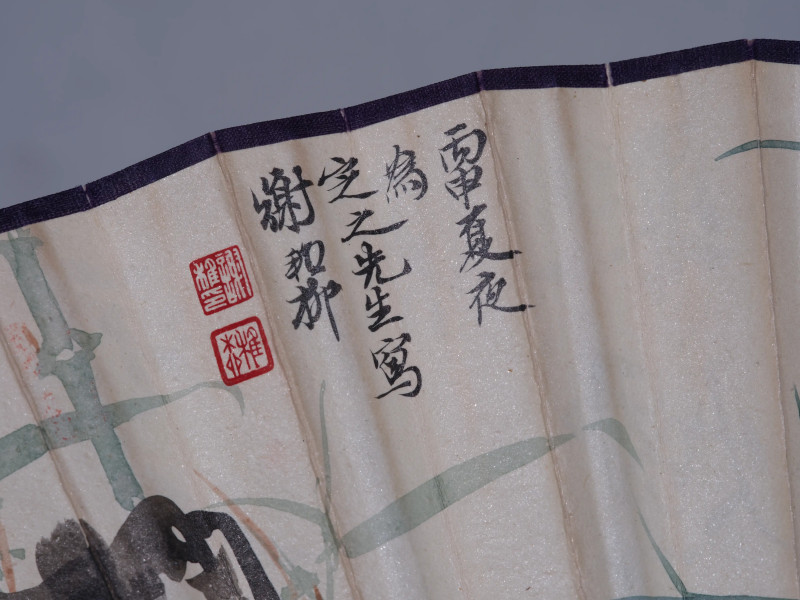 丙申夏夜
為
定之先生寫
謝稚柳
謝稚印
稚柳